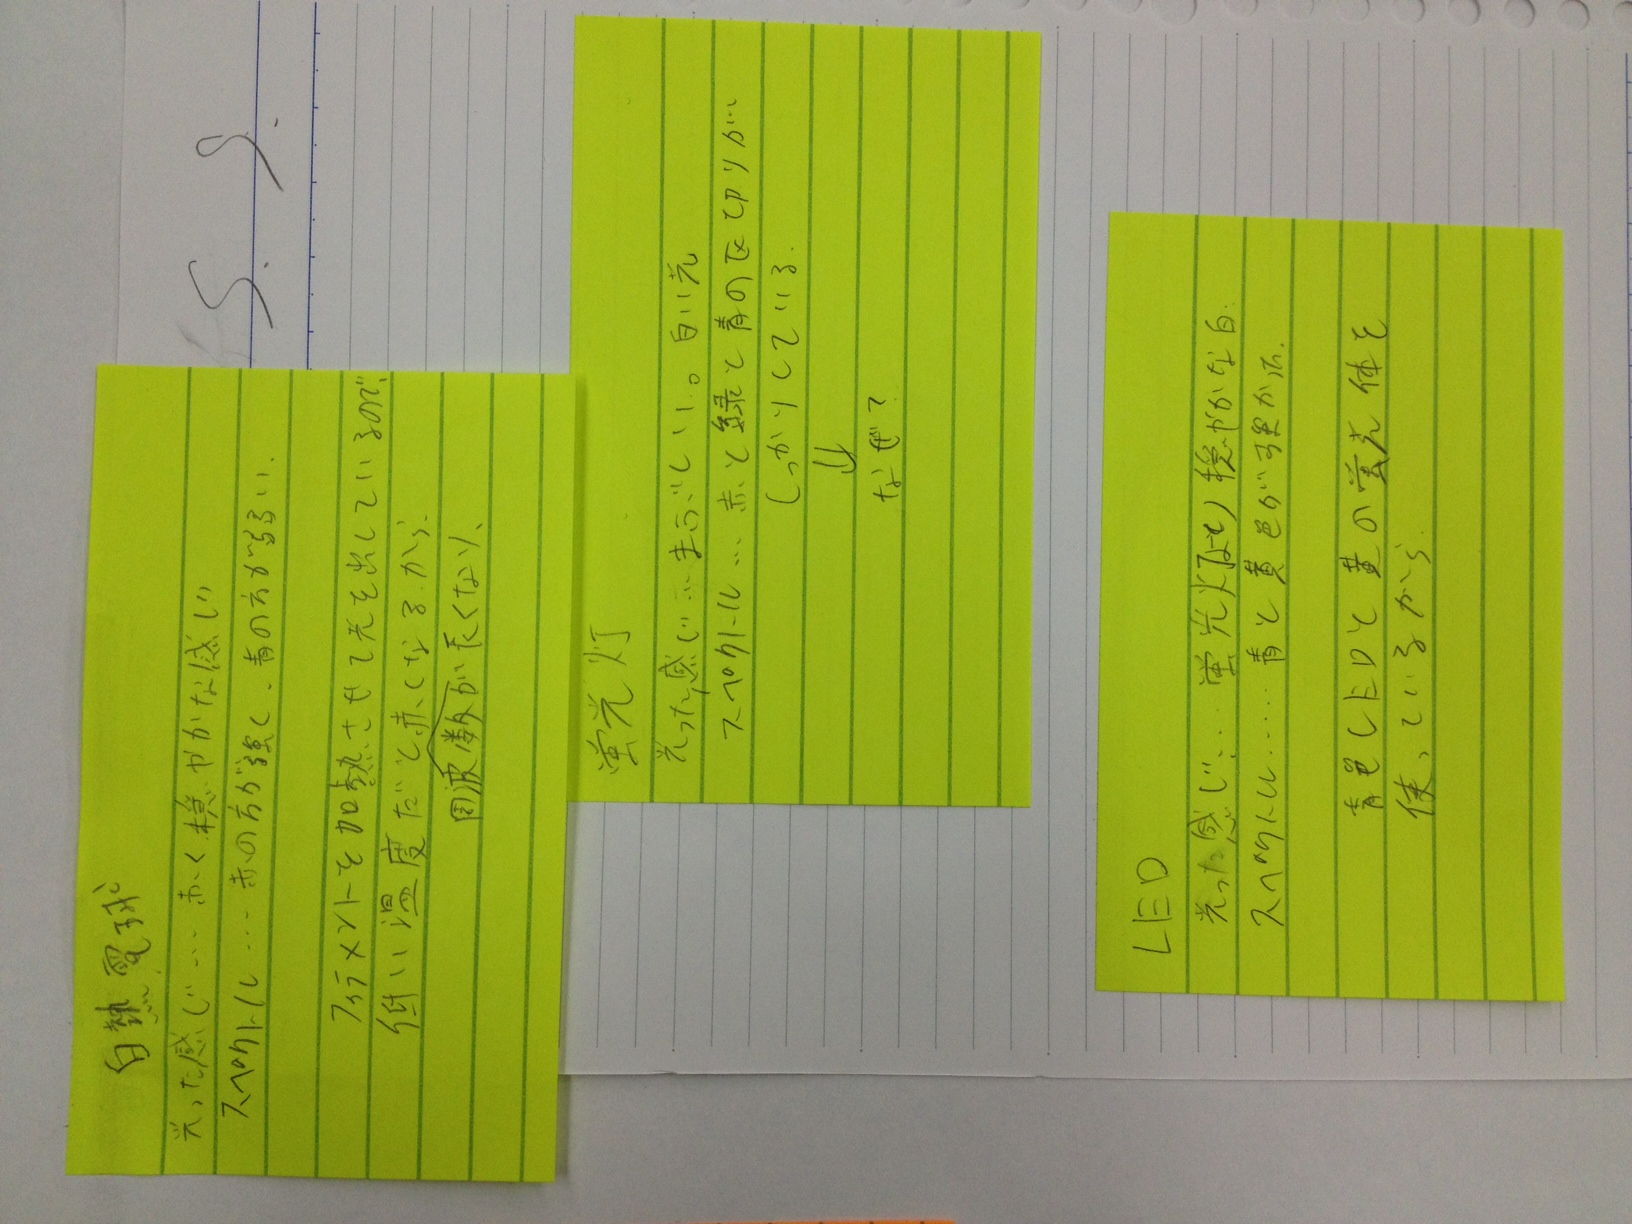 S. S.
白熱電球
光った感じ… 赤く穏やかな感じ
スペクトル… 赤の方が強く、青の方が弱い.
フィラメントを加熱させて光を出しているので、
低い温度だと赤くなるから.
周波数が長くなり、
蛍光灯
光った感じ… まぶしい。白い光
スペクトル… 赤と緑と青の区切りが…
しっかりしている.
なぜ?
LED
光った感じ… 蛍光灯より穏やかな白.
スペクトル…… 青と黄色が強かった.
青色LEDと黄の蛍光体を
使っているから.